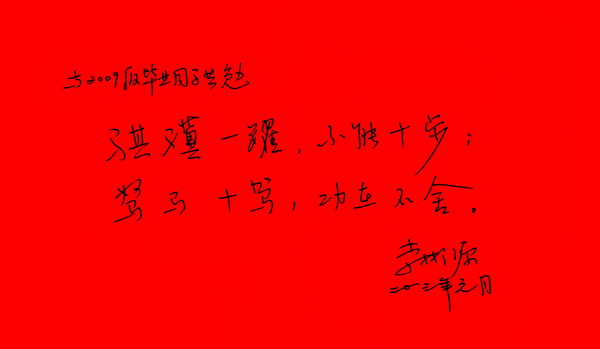 与2009级毕业同学共勉
骐骥一躍，不能十步；
驽马十驾，功在不舍。
二〇一三年元月